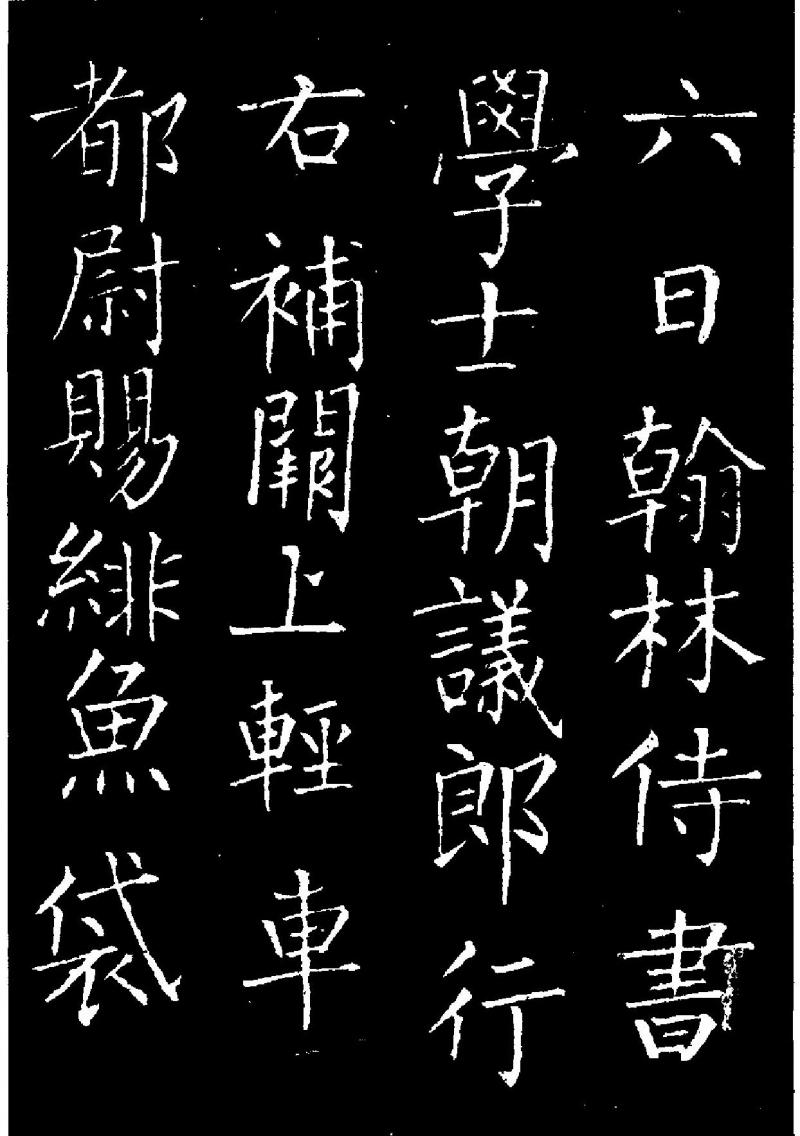 六日翰林侍書
學士朝議郎行
右補闕上輕車
都尉賜緋魚袋